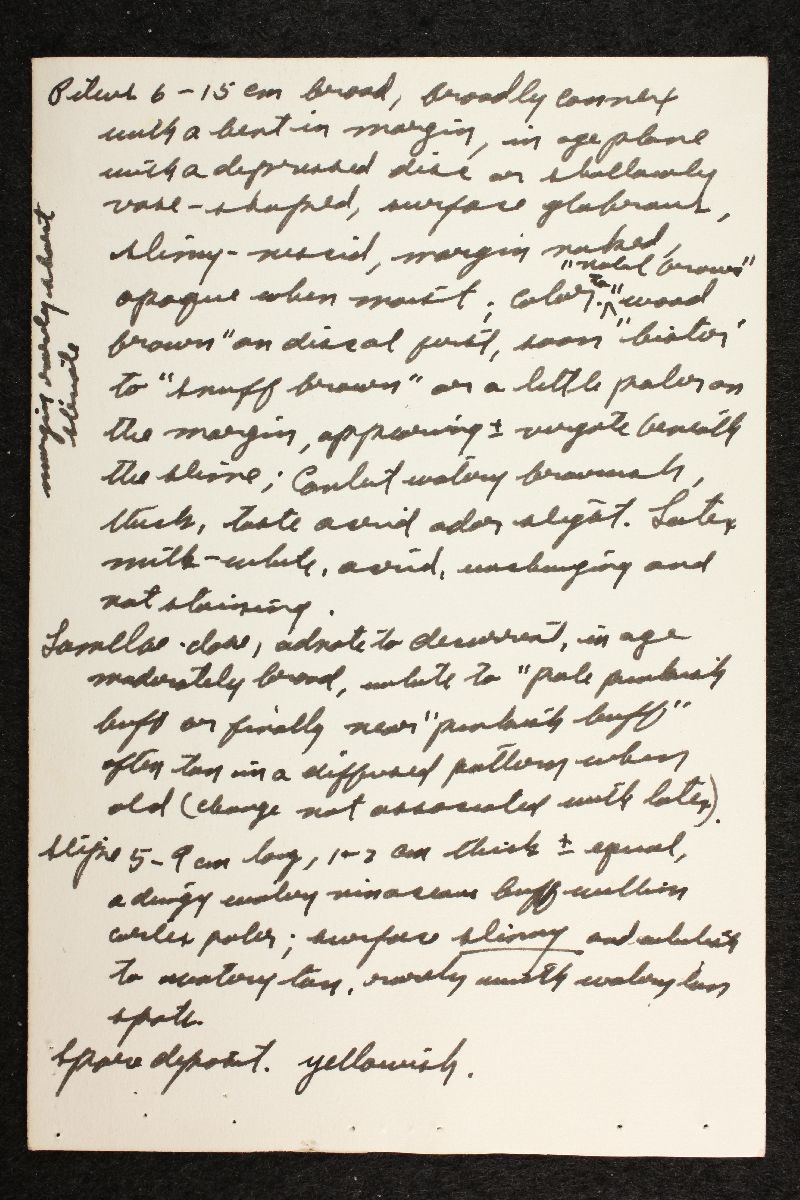 Pileus 6-15 cm broad, broadly convex
with a bent-in margin, in age plane
with a depressed disc or shallowly
vase-shaped, surface glabrous,
slimy-viscid, margin naked,
"natal brown"
opaque when moist; color: to "wood
brown" on disc at first, soon "bister"
to "snuff brown" or a little paler on
the margin, appearing ± virgate beneath
the slime; Context watery brownish,
thick, taste acrid odor slight. Latex
milk-white, acrid, unchanging and
not staining.
Lamellae close, adnate to decurrent, in age
moderately broad, white to "pale pinkish
buff or finally near "pinkish buff"
often tan in a diffused pattern when
old (change not associated with latex).
Stipe 5-9 cm long, 1-2 cm thick ± equal,
a dingy watery vinaceous buff within
cortex paler; surface slimy and whitish
to watery tan, rarely with watery tan
spots.
Spore deposit. yellowish.
margin rarely short
striate